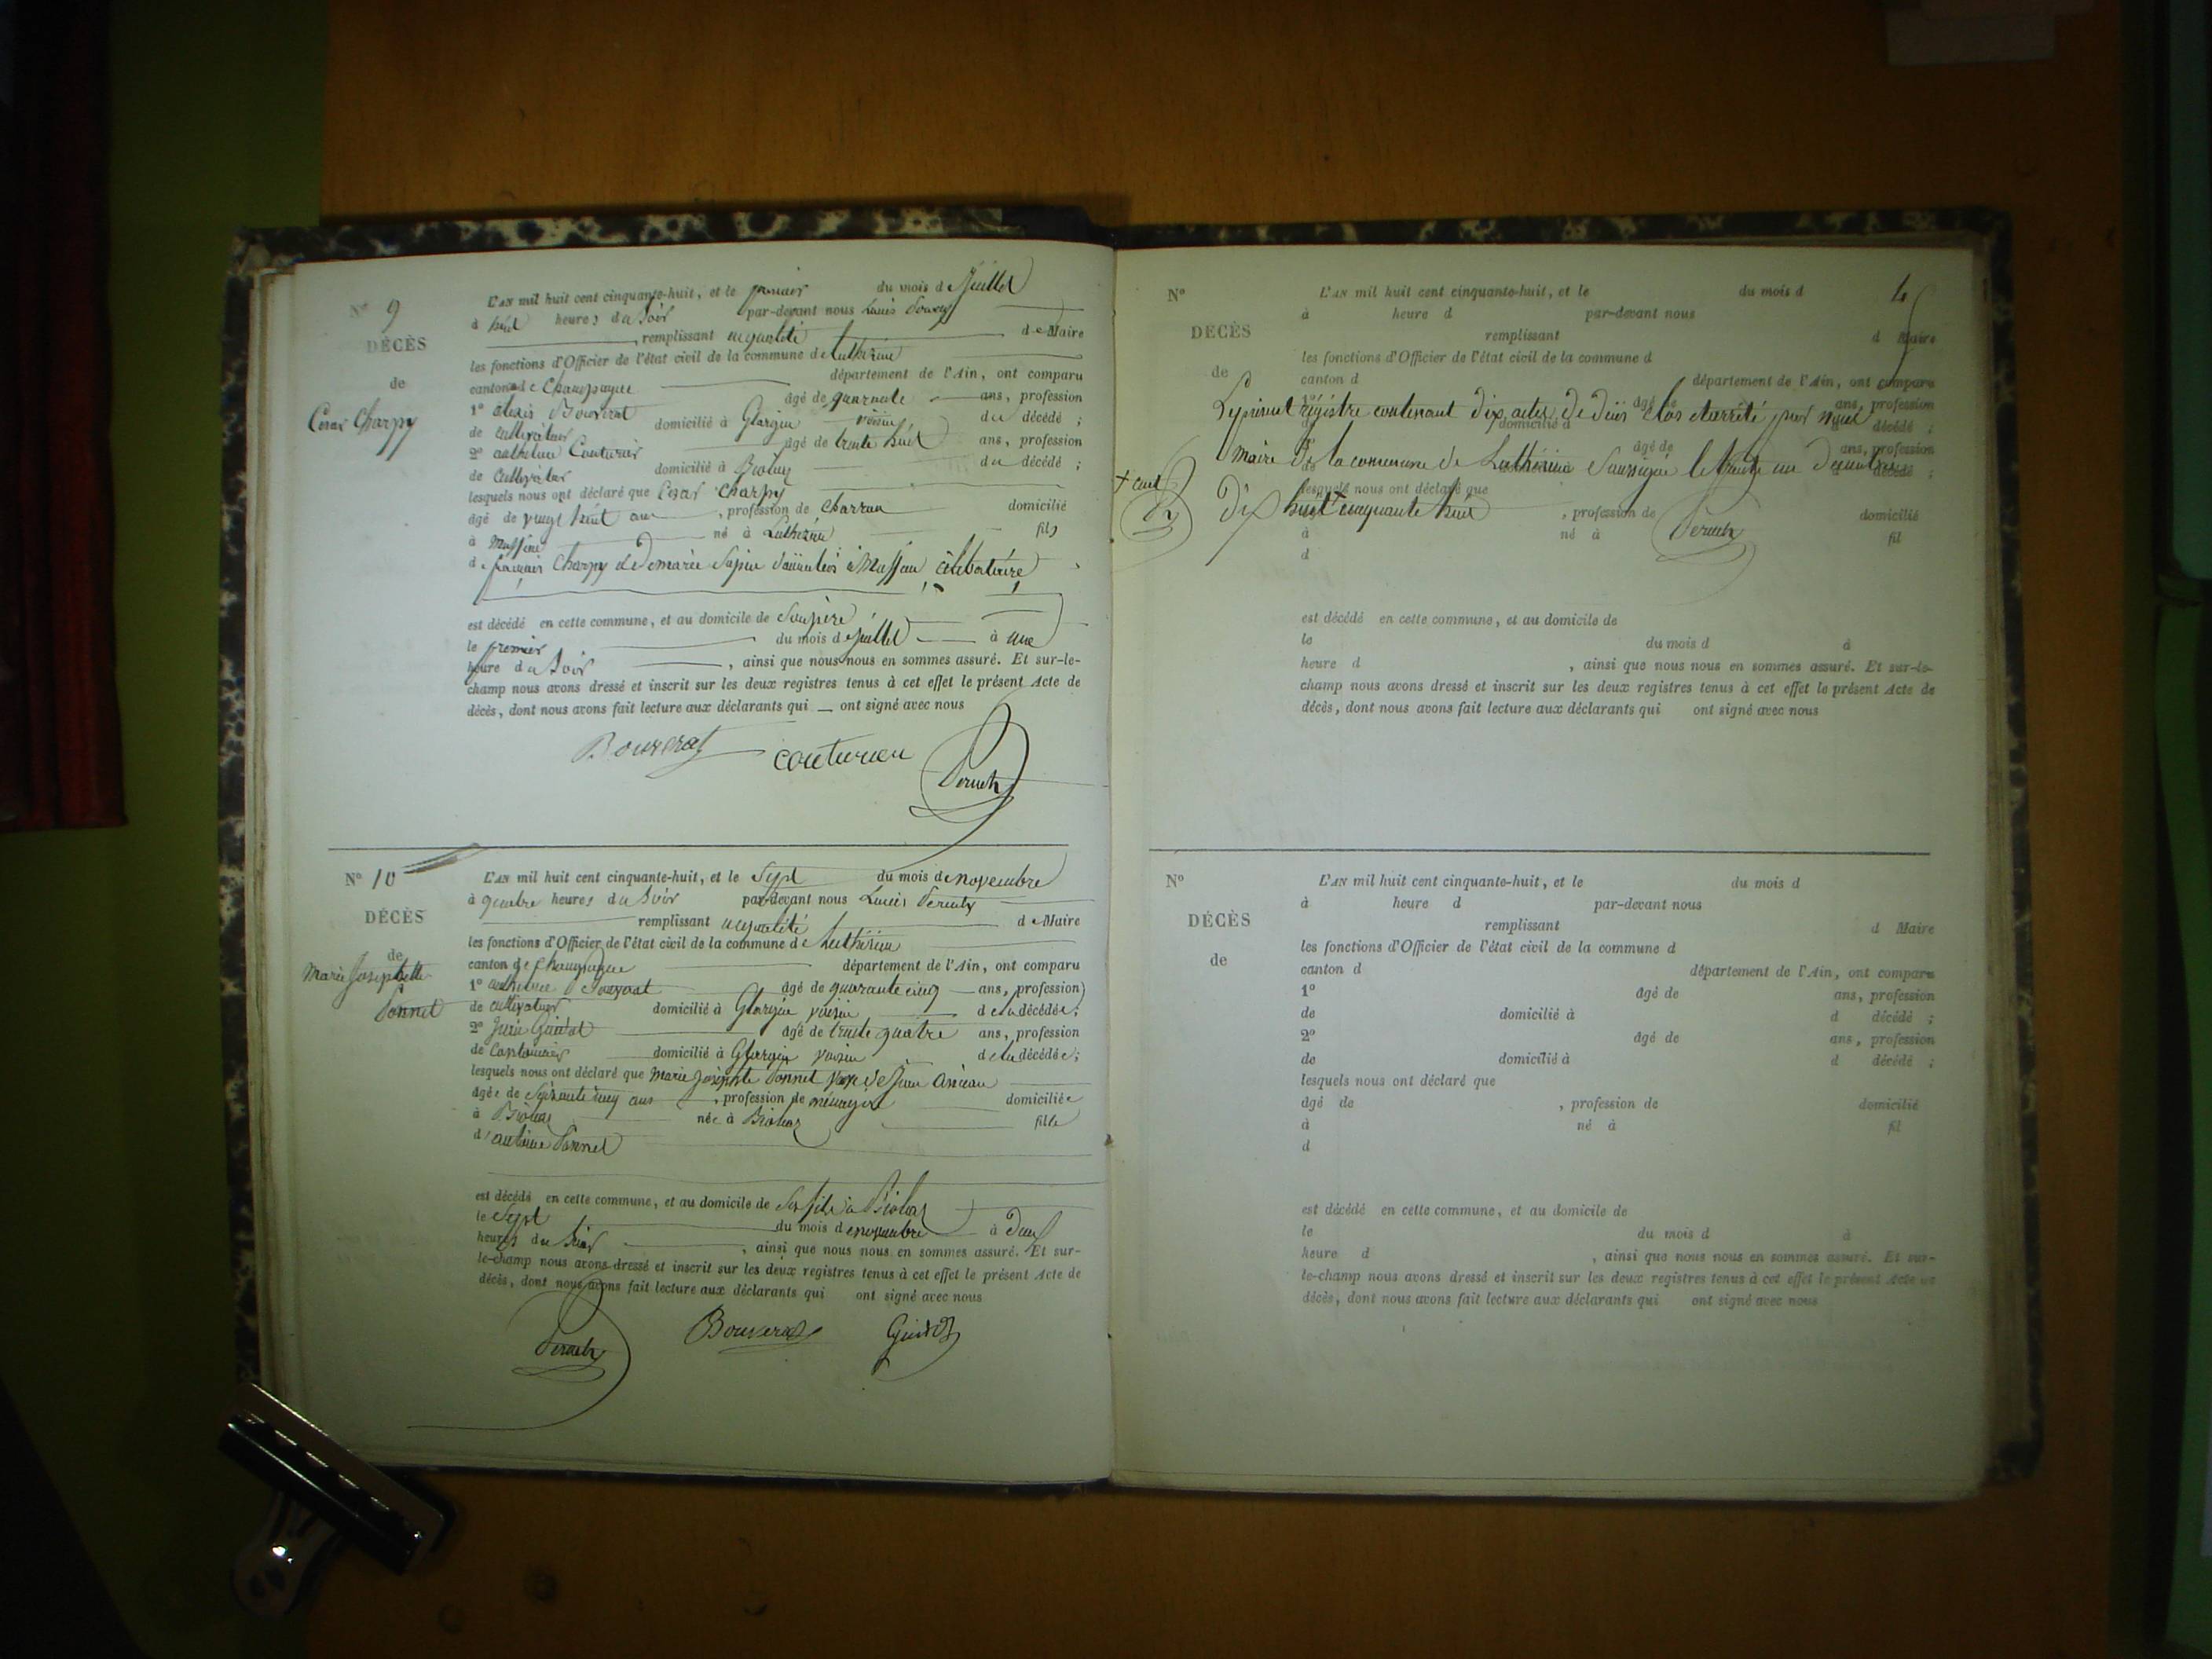 N° 9
DÉCÈS
de
Cesar Charpy
L'AN mil huit cent cinquante-huit, et le premier du mois de Juillet
à huit heures du Soir par-devant nous Louis
, remplissant en qualité de Maire
les fonctions d'Officier de l'état civil de la commune de Luthézieu
canton de Champagne département de l'Ain, ont comparu
1° alexis Bouverat âgé de quarante ans, profession
de cultivateur domicilié à Glargin voisin du décédé ;
2° anthelme Couturier âgé de trente huit ans, profession
de cultivateur domicilié à du décédé ;
lesquels nous ont déclaré que Cesar Charpy
âgé de vingt huit ans , profession de Charron domicilié
à né à Luthézieu fils
de Charpy et de marie domiciliés à célibataire
est décédé en cette commune, et au domicile de Son père
le premier du mois de juillet à une
heure du Soir , ainsi que nous nous en sommes assuré. Et sur-le-
champ nous avons dressé et inscrit sur les deux registres tenus à cet effet le présent Acte de
décès, dont nous avons fait lecture aux déclarants qui ont signé avec nous
Bouverat couturier
N° 10
DÉCÈS
de
Marie Josephette
Bonnet
L'AN mil huit cent cinquante-huit, et le Sept du mois de novembre
à quatre heures du Soir par-devant nous Louis
remplissant en qualité de Maire
les fonctions d'Officier de l'état civil de la commune de Luthézieu
canton de Champagne département de l'Ain, ont comparu
1° anthelme Bouverat âgé de quarante cinq ans, profession
de cultivateur domicilié à Glargin voisin de la décédée ;
2° âgé de trente quatre ans, profession
de domicilié à Glargin voisin de la décédée ;
lesquels nous ont déclaré que marie Josephte Bonnet
âgée de Soixante cinq ans , profession de ménagère domiciliée
à née à fille
d'antoine Bonnet
est décédé en cette commune, et au domicile de Son fils à
le Sept du mois de novembre à deux
heures du Soir , ainsi que nous nous en sommes assuré. Et sur-
le-champ nous avons dressé et inscrit sur les deux registres tenus à cet effet le présent Acte de
décès, dont nous avons fait lecture aux déclarants qui ont signé avec nous
Bouverat
4
N°
DÉCÈS
de
L'AN mil huit cent cinquante-huit, et le du mois d
à heure d par-devant nous
remplissant d Maire
les fonctions d'Officier de l'état civil de la commune d
canton d département de l'Ain, ont comparu
Le présent registre contenant dix actes de décès clos et arrêté par nous
1° âgé de ans, profession
domicilié d décédé ;
maire de la commune de Luthézieu Soussigné le trente un décembre
âgé de ans, profession
décédé ;
+ cent
dix huit + cinquante huit
lesquels nous ont déclaré que
, profession de domicilié
à né à fil
d
est décédé en cette commune, et au domicile de
le du mois d à
heure d , ainsi que nous nous en sommes assuré. Et sur-le-
champ nous avons dressé et inscrit sur les deux registres tenus à cet effet le présent Acte de
décès, dont nous avons fait lecture aux déclarants qui ont signé avec nous
N°
DÉCÈS
de
L'AN mil huit cent cinquante-huit, et le du mois d
à heure d par-devant nous
remplissant d Maire
les fonctions d'Officier de l'état civil de la commune d
canton d département de l'Ain, ont comparu
1° âgé de ans, profession
de domicilié à d décédé ;
2° âgé de ans, profession
de domicilié à d décédé ;
lesquels nous ont déclaré que
âgé de , profession de domicilié
à né à fil
d
est décédé en cette commune, et au domicile de
le du mois d à
heure d , ainsi que nous nous en sommes assuré. Et sur-
le-champ nous avons dressé et inscrit sur les deux registres tenus à cet effet le présent Acte de
décès, dont nous avons fait lecture aux déclarants qui ont signé avec nous